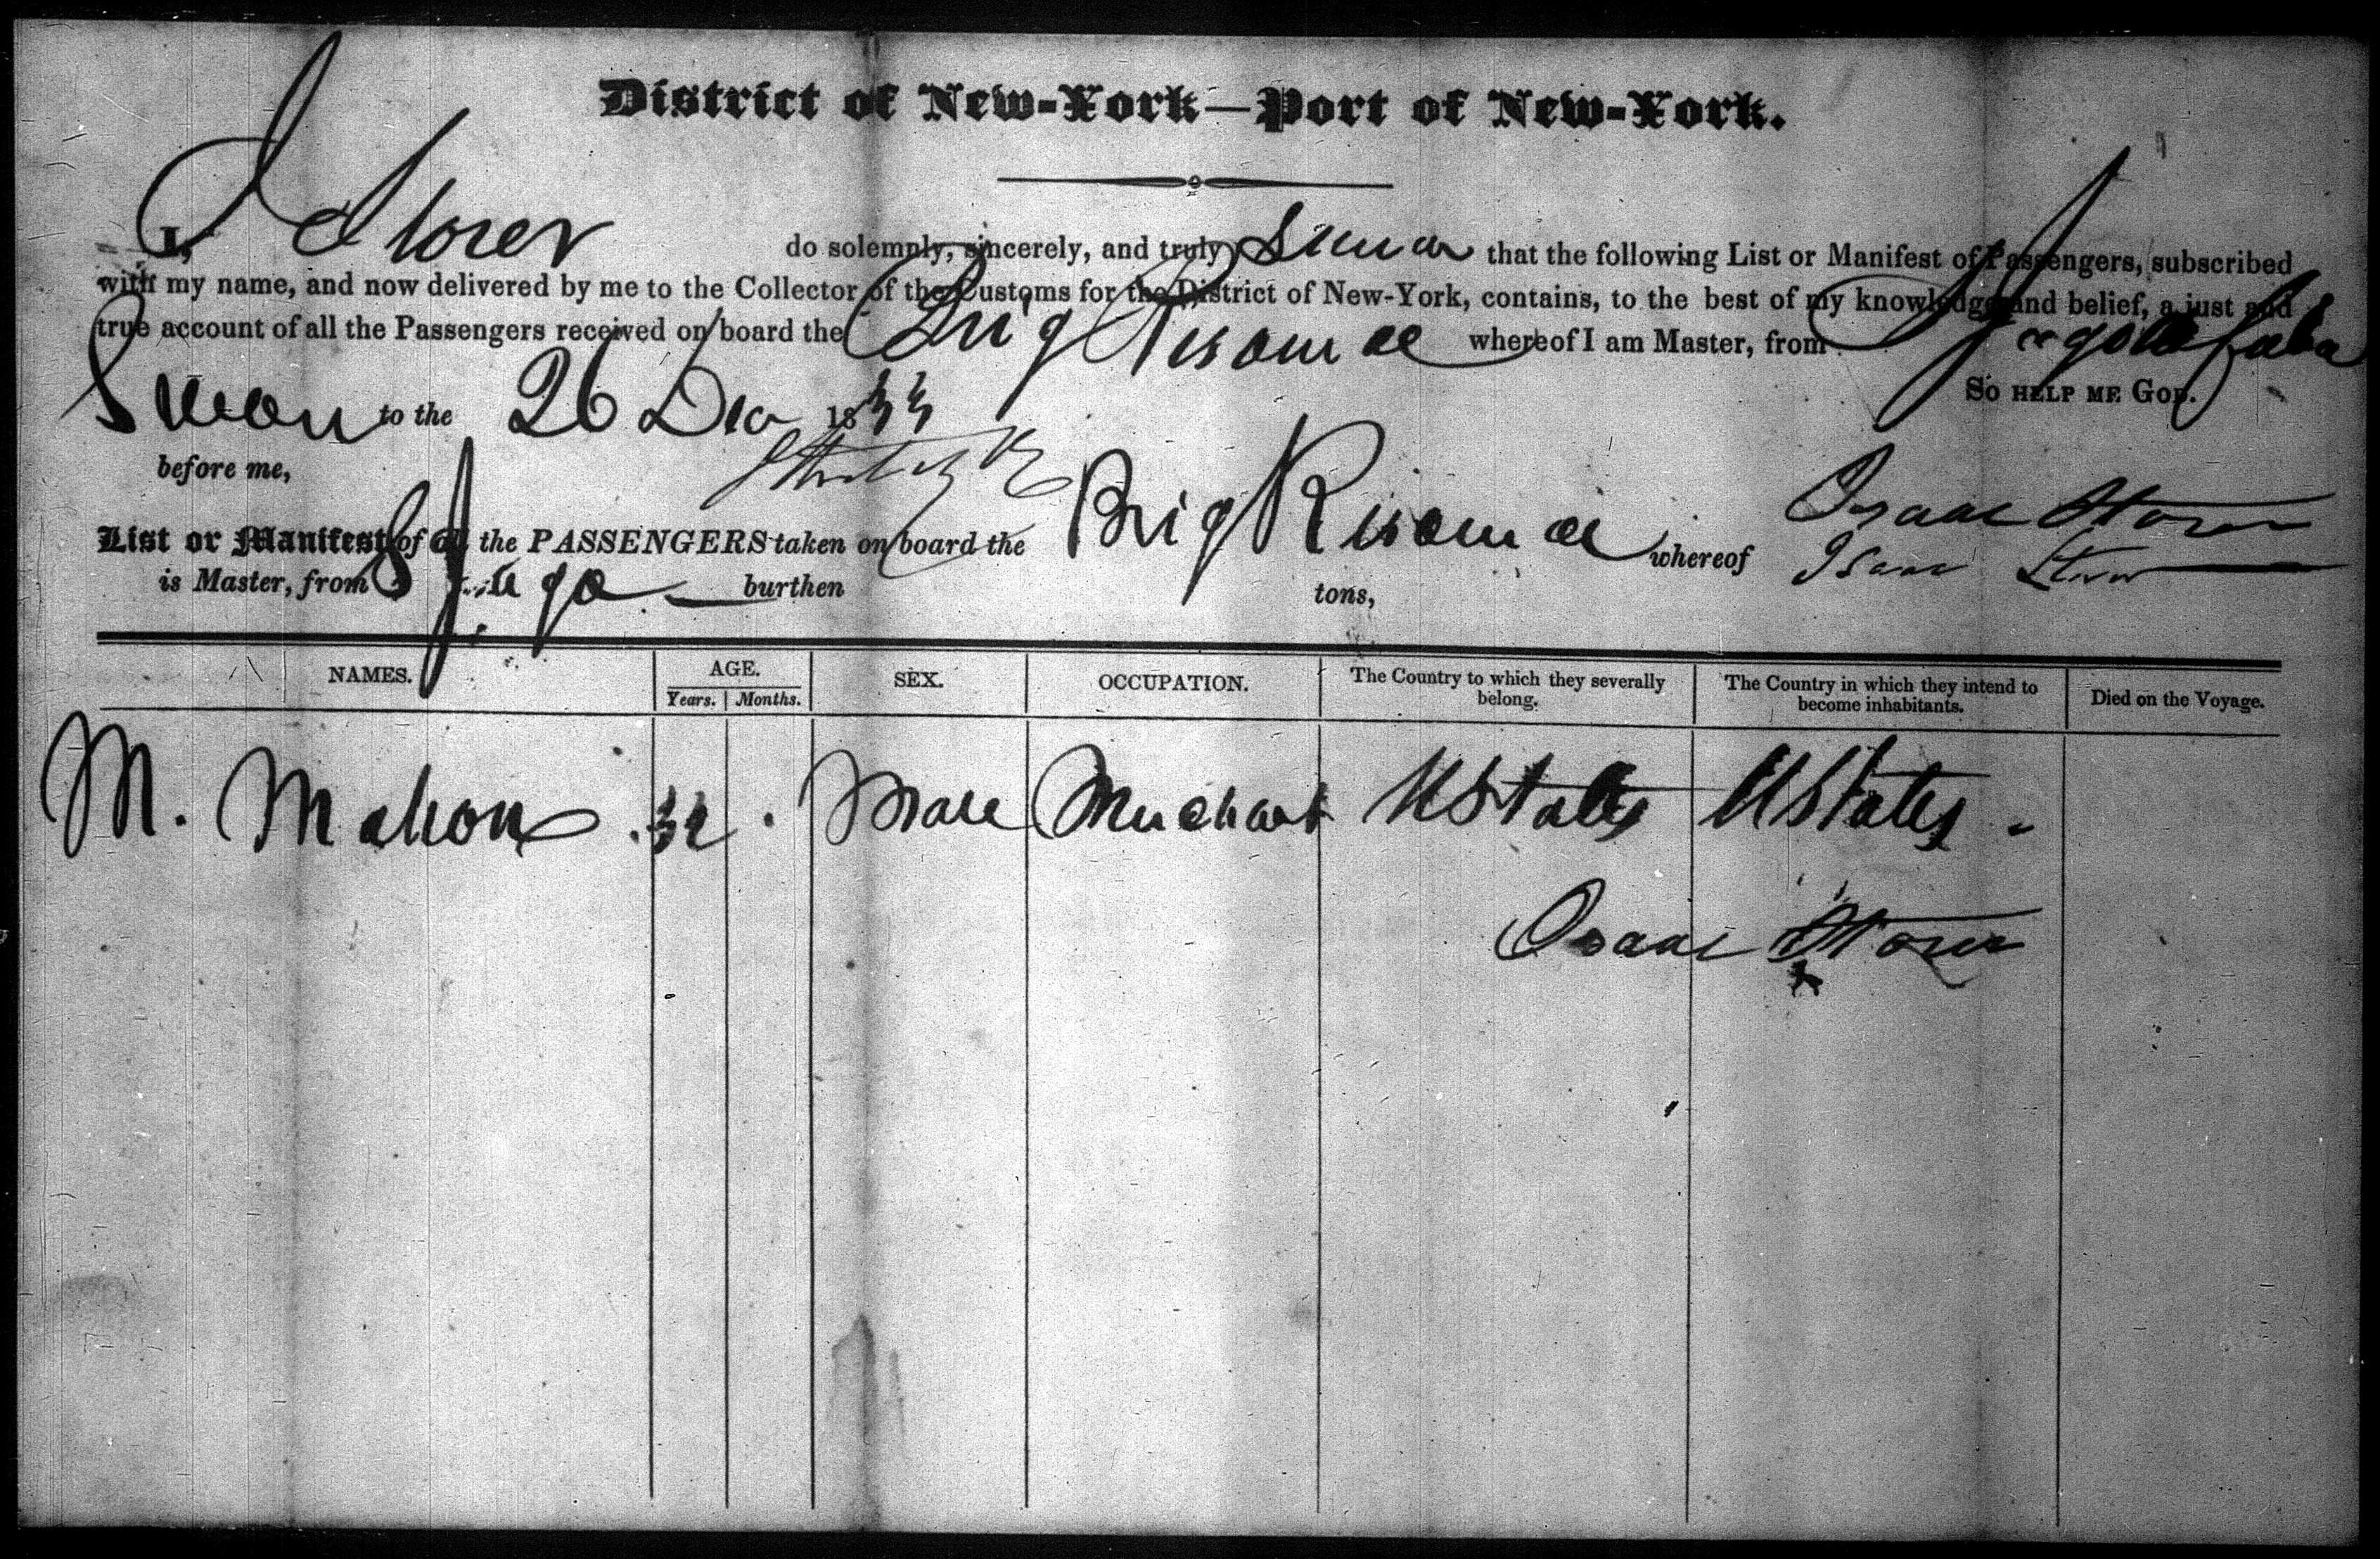 District of New-York—Port of New-York.
I, I Storer do solemnly, sincerely, and truly Swear that the following List or Manifest of Passengers, subscribed
with my name, and now delivered by me to the Collector of the Customs for the District of New-York, contains, to the best of my knowledge and belief, a just and
true account of all the Passengers received on board the Brig whereof I am Master, from
So HELP ME GOD.
Sworn to the 26 Dec 1833
before me,
Isaac Storer
List or Manifest of all the PASSENGERS taken on board the Brig whereof Isaac Storer
is Master, from St Jago burthen tons,
NAMES. AGE. SEX. OCCUPATION. The Country to which they severally belong. The Country in which they intend to become inhabitants. Died on the Voyage.
Years. Months.
M. Mahon 32 Male Merchant UStates UStates
Isaac Storer